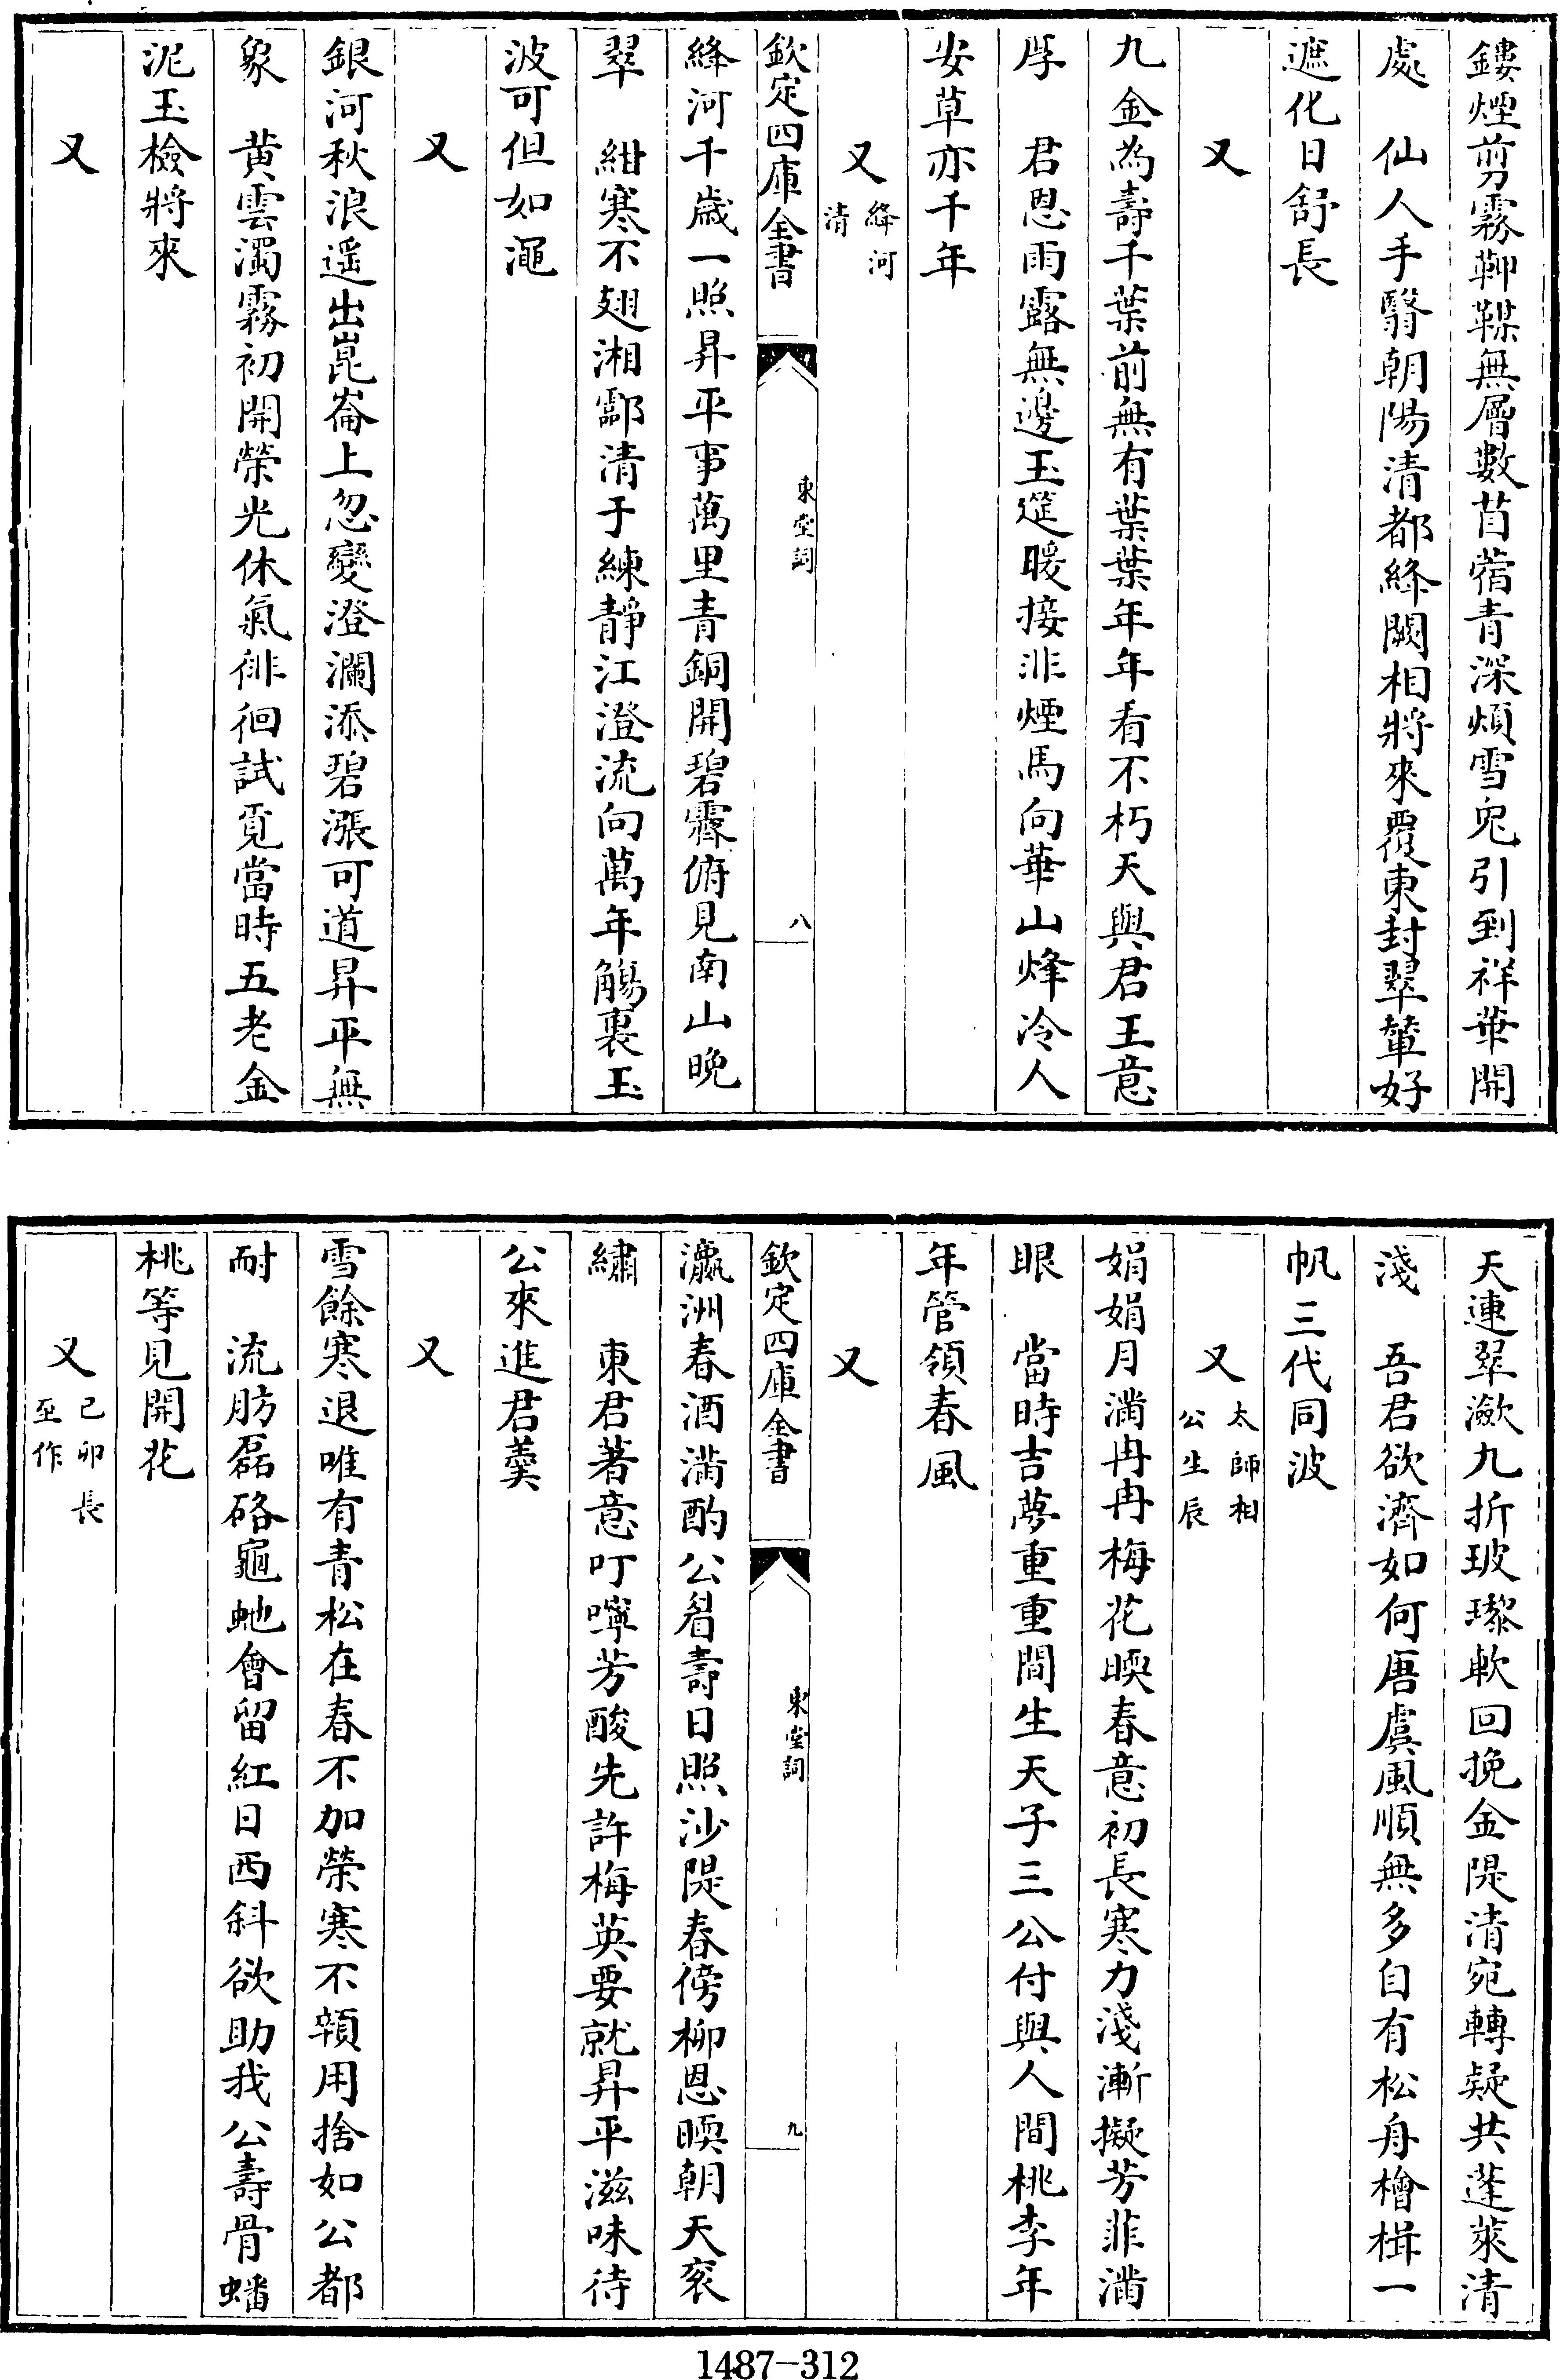 鏤煙剪霧鞆鞢無層數苜蓿青深煩雪兔引到祥華開
處　仙人手翳朝陽清都絳闕相將來覆東封翠輦好
遮化日舒長
又
九金為壽千葉前無有葉葉年年看不朽天與君王意
厚　君恩雨露無邊玉筵暖接非煙馬向華山烽冷人
安草亦千年
又絳河
清
欽定四庫全書
東堂詞
八
絳河千歲一照昇平事萬里青銅開碧霽俯見南山晚
翠　紺寒不翅湘酃清于練靜江澄流向萬年觴裏玉
波可但如澠
又
銀河秋浪遥出崑崙上忽變澄瀾添碧漲可道昇平無
象　黄雲濁霧初開榮光休氣徘徊試覓當時五老金
泥玉檢將來
又
天連翠瀲九折玻瓈軟回挽金隄清宛轉疑共蓬萊清
淺　吾君欲濟如何唐虞風順無多自有松舟檜楫一
帆三代同波
又太師相
公生辰
娟娟月滿冉冉梅花暎春意初長寒力淺漸擬芳菲滿
眼　當時吉夢重重間生天子三公付與人間桃李年
年管領春風
又
欽定四庫全書
東堂詞
九
瀛洲春酒滿酌公眉壽日照沙隄春傍柳恩暎朝天衮
繡　東君著意叮嚀芳酸先許梅英要就昇平滋味待
公來進君羹
又
雪餘寒退唯有青松在春不加榮寒不頼用捨如公都
耐　流肪磊硌龜虵會留紅日西斜欲助我公壽骨蟠
桃等見開花
又己卯長
至作
1487-312